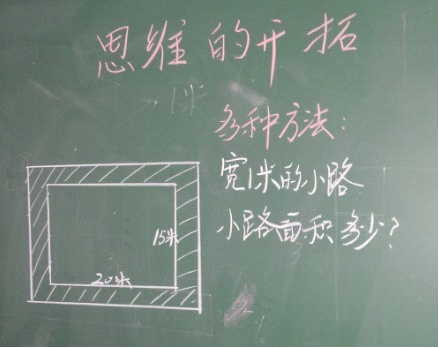 思维的开拓
多种方法：
宽1米的小路
小路面积多少？
15米
20米